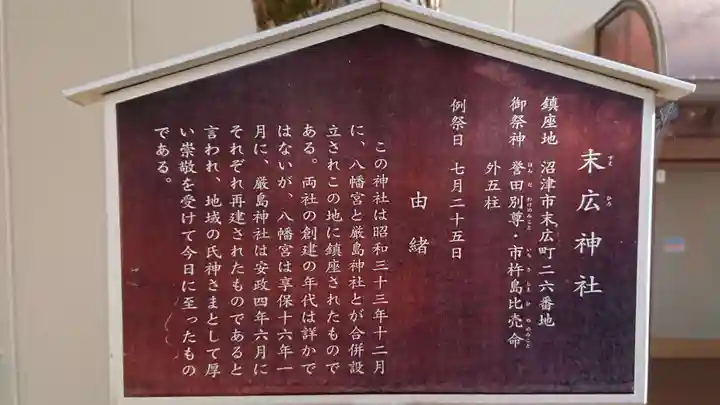 末広神社
すえ ひろ
鎮座地 沼津市末広町二六番地
御祭神 誉田別尊・市杵島比売命
ほんだ わけのみこと いちきしまひめのみこと
外五柱
例祭日 七月二十五日
由緒
この神社は昭和三十三年十二月
に、八幡宮と厳島神社とが合併設
立されこの地に鎮座されたもので
ある。両社の創建の年代は詳かで
はないが、八幡宮は享保十六年一
月に、厳島神社は安政四年六月に
それぞれ再建されたものであると
言われ、地域の氏神さまとして厚
い崇敬を受けて今日に至ったもの
である。